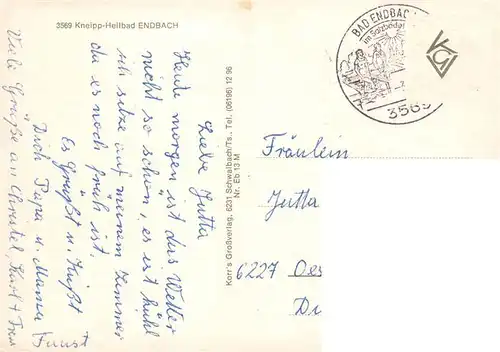 3569 Kneipp-Heilbad ENDBACH
Liebe Jutta
Heute morgen ist das Wetter
nicht so schön, es ist kühl
ich sitze auf meinem Zimmer
da es noch früh ist.
Es Grüßt u. Küßt
Dich Papa u. Mama
Faust
Viele Grüße an Christel, Karl +
Korr's Großverlag, 6231 Schwalbach/Ts., Tel. (06196) 12 96
Nr. Eb 13 M
BAD ENDBAC
im Salzböde
3569
Fräulein
Jutta
6227 Oes